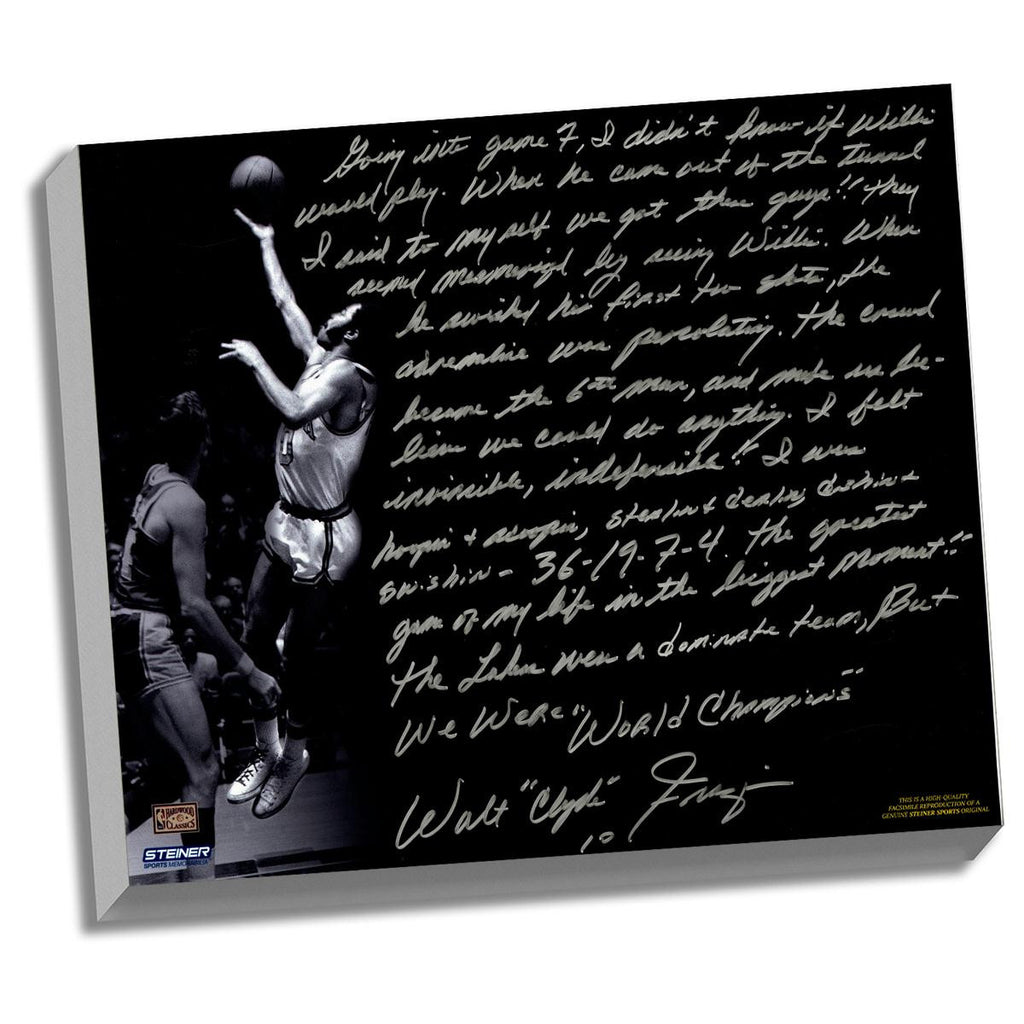 Going into game 7, I didn't know if Willis
would play. When he came out of the tunnel
I said to my self we got these guys!! They
seemed mesmerized by seeing Willis. When
he swished his first two shots, the
adrenaline was percolating. The crowd
became the 6th man, and made us be-
lieve we could do anything. I felt
invincible, indefensible!! I was
hoopin + scoopin, stealin + dealin, dishin +
swishin - 36-19-7-4. The greatest
game of my life in the biggest moment!!
The Lakers were a dominate team, But
We Were "World Champions"
Walt "Clyde" Frazier
10
HARDWOOD
CLASSICS
STEINER
SPORTS MEMORABILIA
THIS IS A HIGH-QUALITY
FACSIMILE REPRODUCTION OF A
GENUINE STEINER SPORTS ORIGINAL